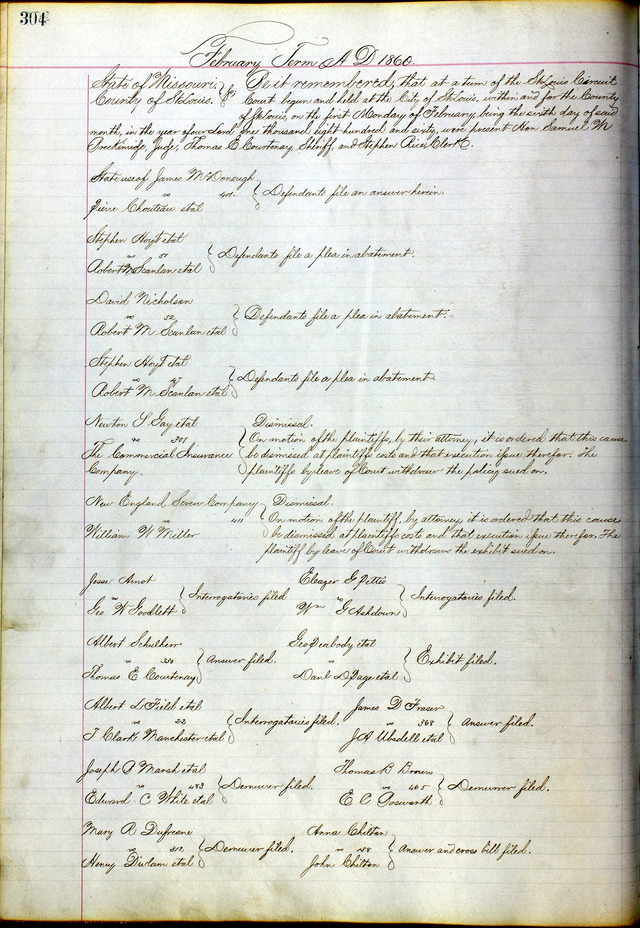 304
February Term A D 1860.
State of Missouri } ss Be it remembered, that at a term of the St Louis Circuit
County of St Louis. Court begun and held at the City of St Louis, within and for the County
of St Louis, on the first Monday of February, being the sixth day of said
month, in the year of our Lord one thousand eight hundred and sixty, were present Hon Samuel M
Breckinridge, Judge, Thomas C Courtenay, Sheriff, and Stephen Rice, Clerk.
State use of James McDonough
vs 401. } Defendants file an answer herein.
Pierre Chouteau etal
Stephen Hoyt etal
vs 51 } Defendants file a plea in abatement.
Robert M Scanlan etal
David Nicholson
vs 52 } Defendants file a plea in abatement.
Robert M Scanlan etal
Stephen Hoyt etal
vs } Defendants file a plea in abatement.
Robert M Scanlan etal
Newton S Gay etal Dismissal.
vs 301 } On motion of the plaintiffs, by their attorney, it is ordered that this cause
The Commercial Insurance be dismissed at plaintiffs costs and that execution issue therefor. The
Company. plaintiffs by leave of Court withdraw the policy sued on.
New England Screw Company Dismissal.
vs 411 } On motion of the plaintiff, by attorney it is ordered that this cause
William W Miller be dismissed at plaintiffs costs and that execution issue therefor. The
plaintiff by leave of Court withdraws the exhibit sued on.
Jesse Arnot
vs } Interrogatories filed
Geo W Goodlett
Eleazer G Pettes
vs } Interrogatories filed.
Wm G Ashdown
Albert Schulherr
vs 330 } Answer filed.
Thomas C Courtenay
Geo Peabody etal
vs } Exhibit filed.
Danl D Page etal
Albert L Field etal
vs 22 } Interrogatories filed.
T Clark Manchester etal
James D Fraser
vs 368 } Answer filed.
J A Ubsdell etal
Joseph P Marsh etal
vs 483 } Demurrer filed.
Edward C White etal
Thomas B Brown
vs 465 } Demurrer filed.
E C Bosworth
Mary R Dufresne
vs 212 } Demurrer filed.
Henry etal
Anna Chilton
vs 158 } Answer and cross bill filed.
John Chilton